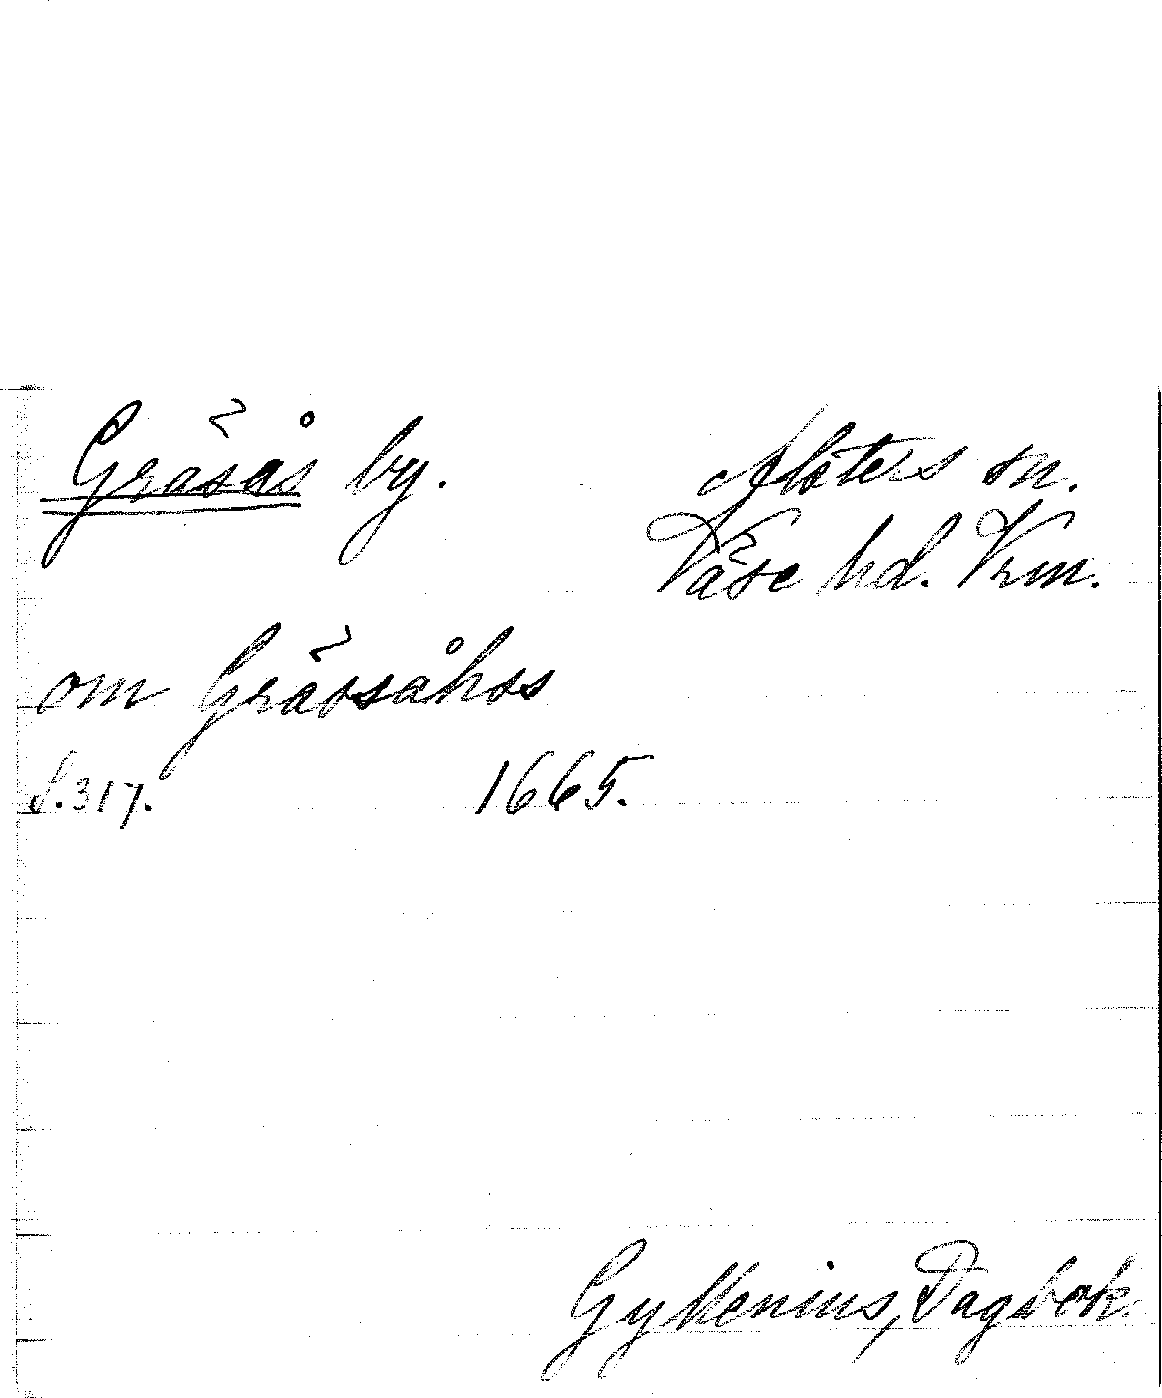 Gräsås by.
Alsters sn.
Väse hd. Vrm.
om Grässåhss
S. 317.
1665.
Gyllenius, Dagbok.